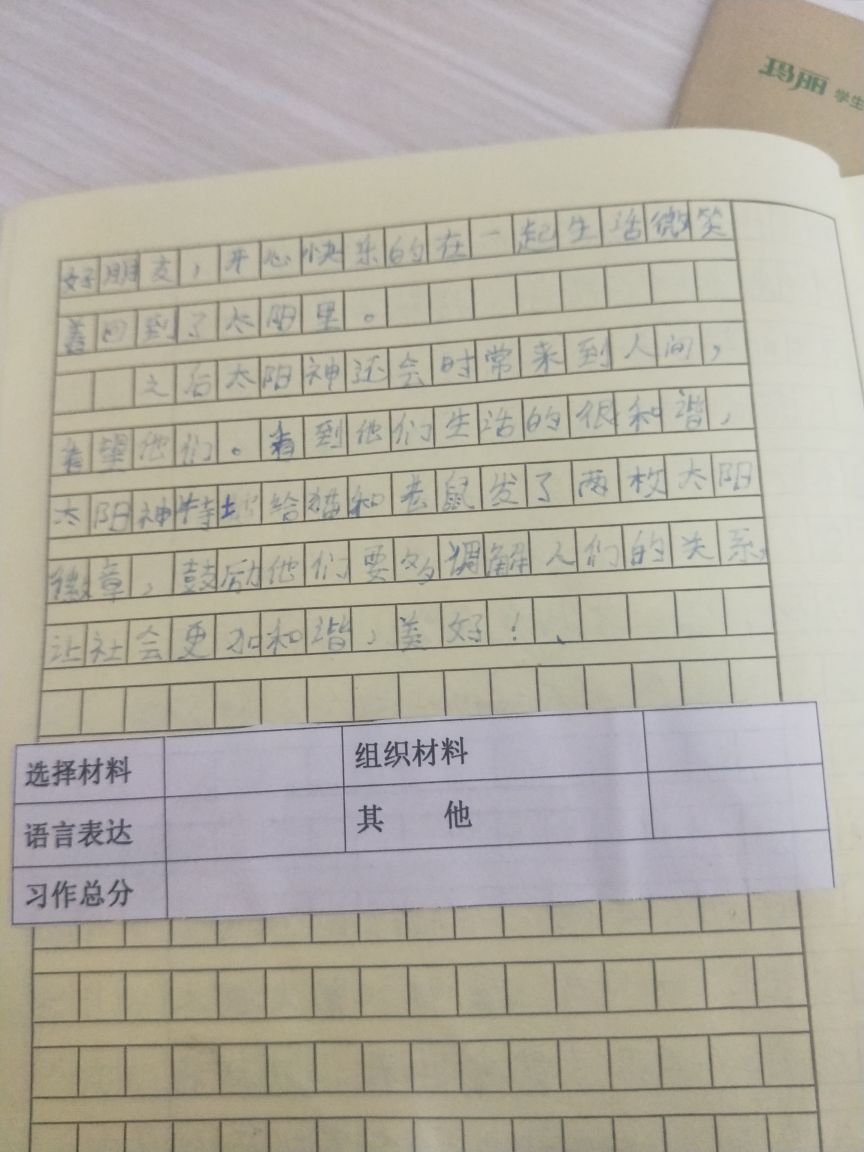 学生
好朋友，开心快乐的在一起生活微笑
着回到了太阳里。
之后太阳神还会时常来到人间，
看望他们。看到他们生活的很和谐，
太阳神特地给猫和老鼠发了两枚太阳
徽章，鼓励他们要多调解人们的关系，
让社会更加和谐，美好！
选择材料 组织材料
语言表达 其 他
习作总分